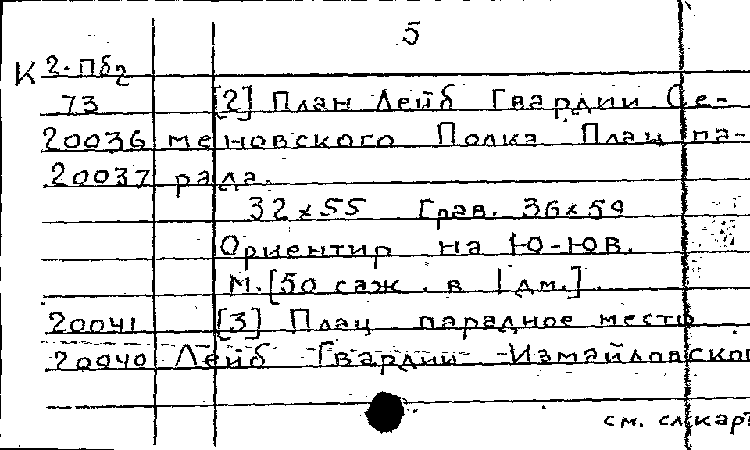 5
К 2-Пб2
73 [2] План Лейб Гвардии Се-
20036 меновского Полка Плац па-
20037 рада.
32 x 55 Грав. 36 x 59
Ориентир на Ю-ЮВ.
М. [50 саж. в 1 дм.]
20041 [3] Плац парадное место
20040 Лейб Гвардии Измайловског
см. сл карт